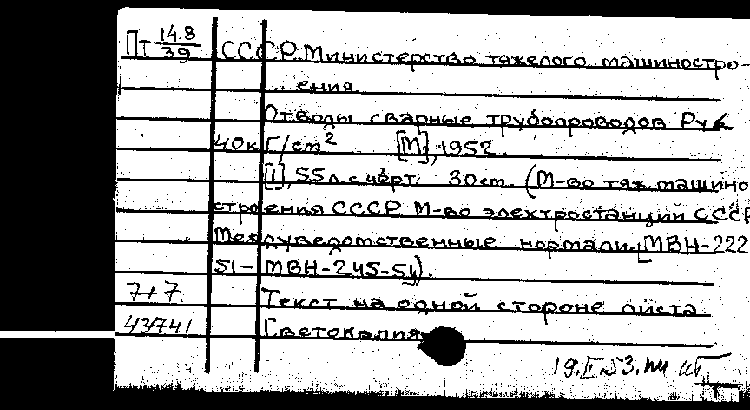 Пт 14.8/39 СССР. Министерство тяжелого машиностро-
ения.
Отводы сварные трубопроводов Ру ≤
40 кГ/см² [М], 1952.
[1], 55 л. с черт. 30 см. (М-во тяж. машино-
строения СССР. М-во электростанций СССР.
Междуведомственные нормали. [МВН-222-
51 - МВН-245-51]).
7+7 Текст на одной стороне листа
43741 Светокалия
19.II 53.